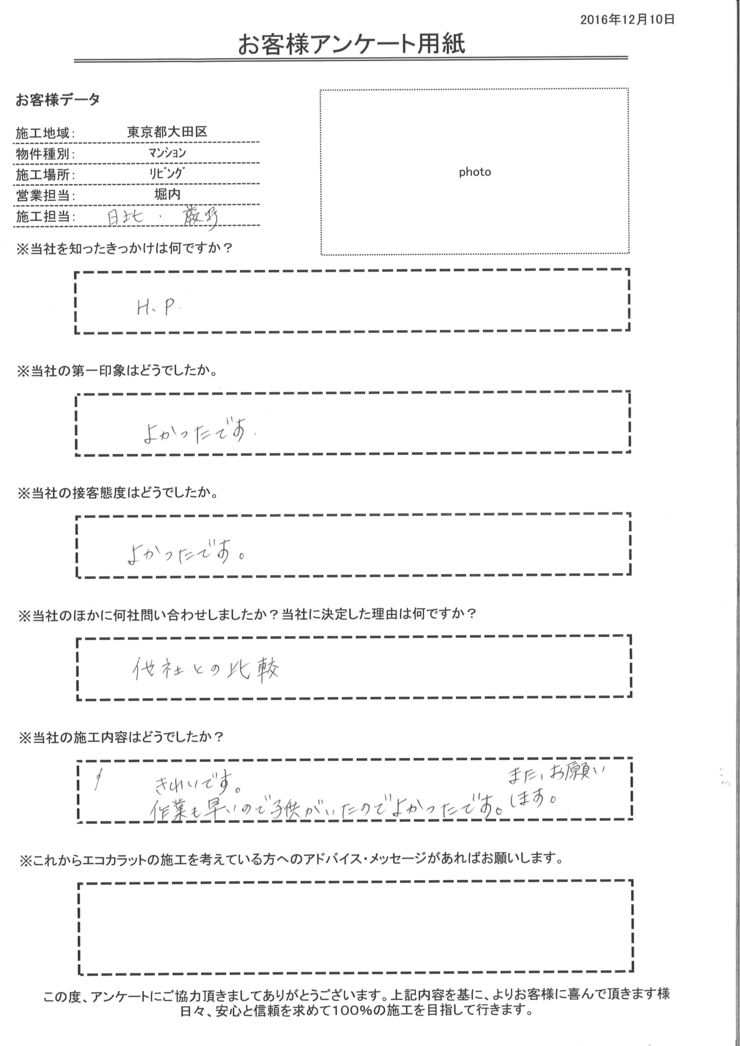 2016年12月10日
お客様アンケート用紙
お客様データ
施工地域: 東京都大田区
物件種別: ﾏﾝｼｮﾝ
施工場所: ﾘﾋﾞﾝｸﾞ
営業担当: 堀内
施工担当: 日比・藤野
photo
※当社を知ったきっかけは何ですか？
H.P.
※当社の第一印象はどうでしたか。
よかったです.
※当社の接客態度はどうでしたか。
よかったです。
※当社のほかに何社問い合わせしましたか？当社に決定した理由は何ですか？
他社との比較
※当社の施工内容はどうでしたか？
きれいです。
作業も早いので子供がいたのでよかったです。
また、お願い
します。
※これからエコカラットの施工を考えている方へのアドバイス・メッセージがあればお願いします。
この度、アンケートにご協力頂きましてありがとうございます。上記内容を基に、よりお客様に喜んで頂きます様
日々、安心と信頼を求めて100%の施工を目指して行きます。